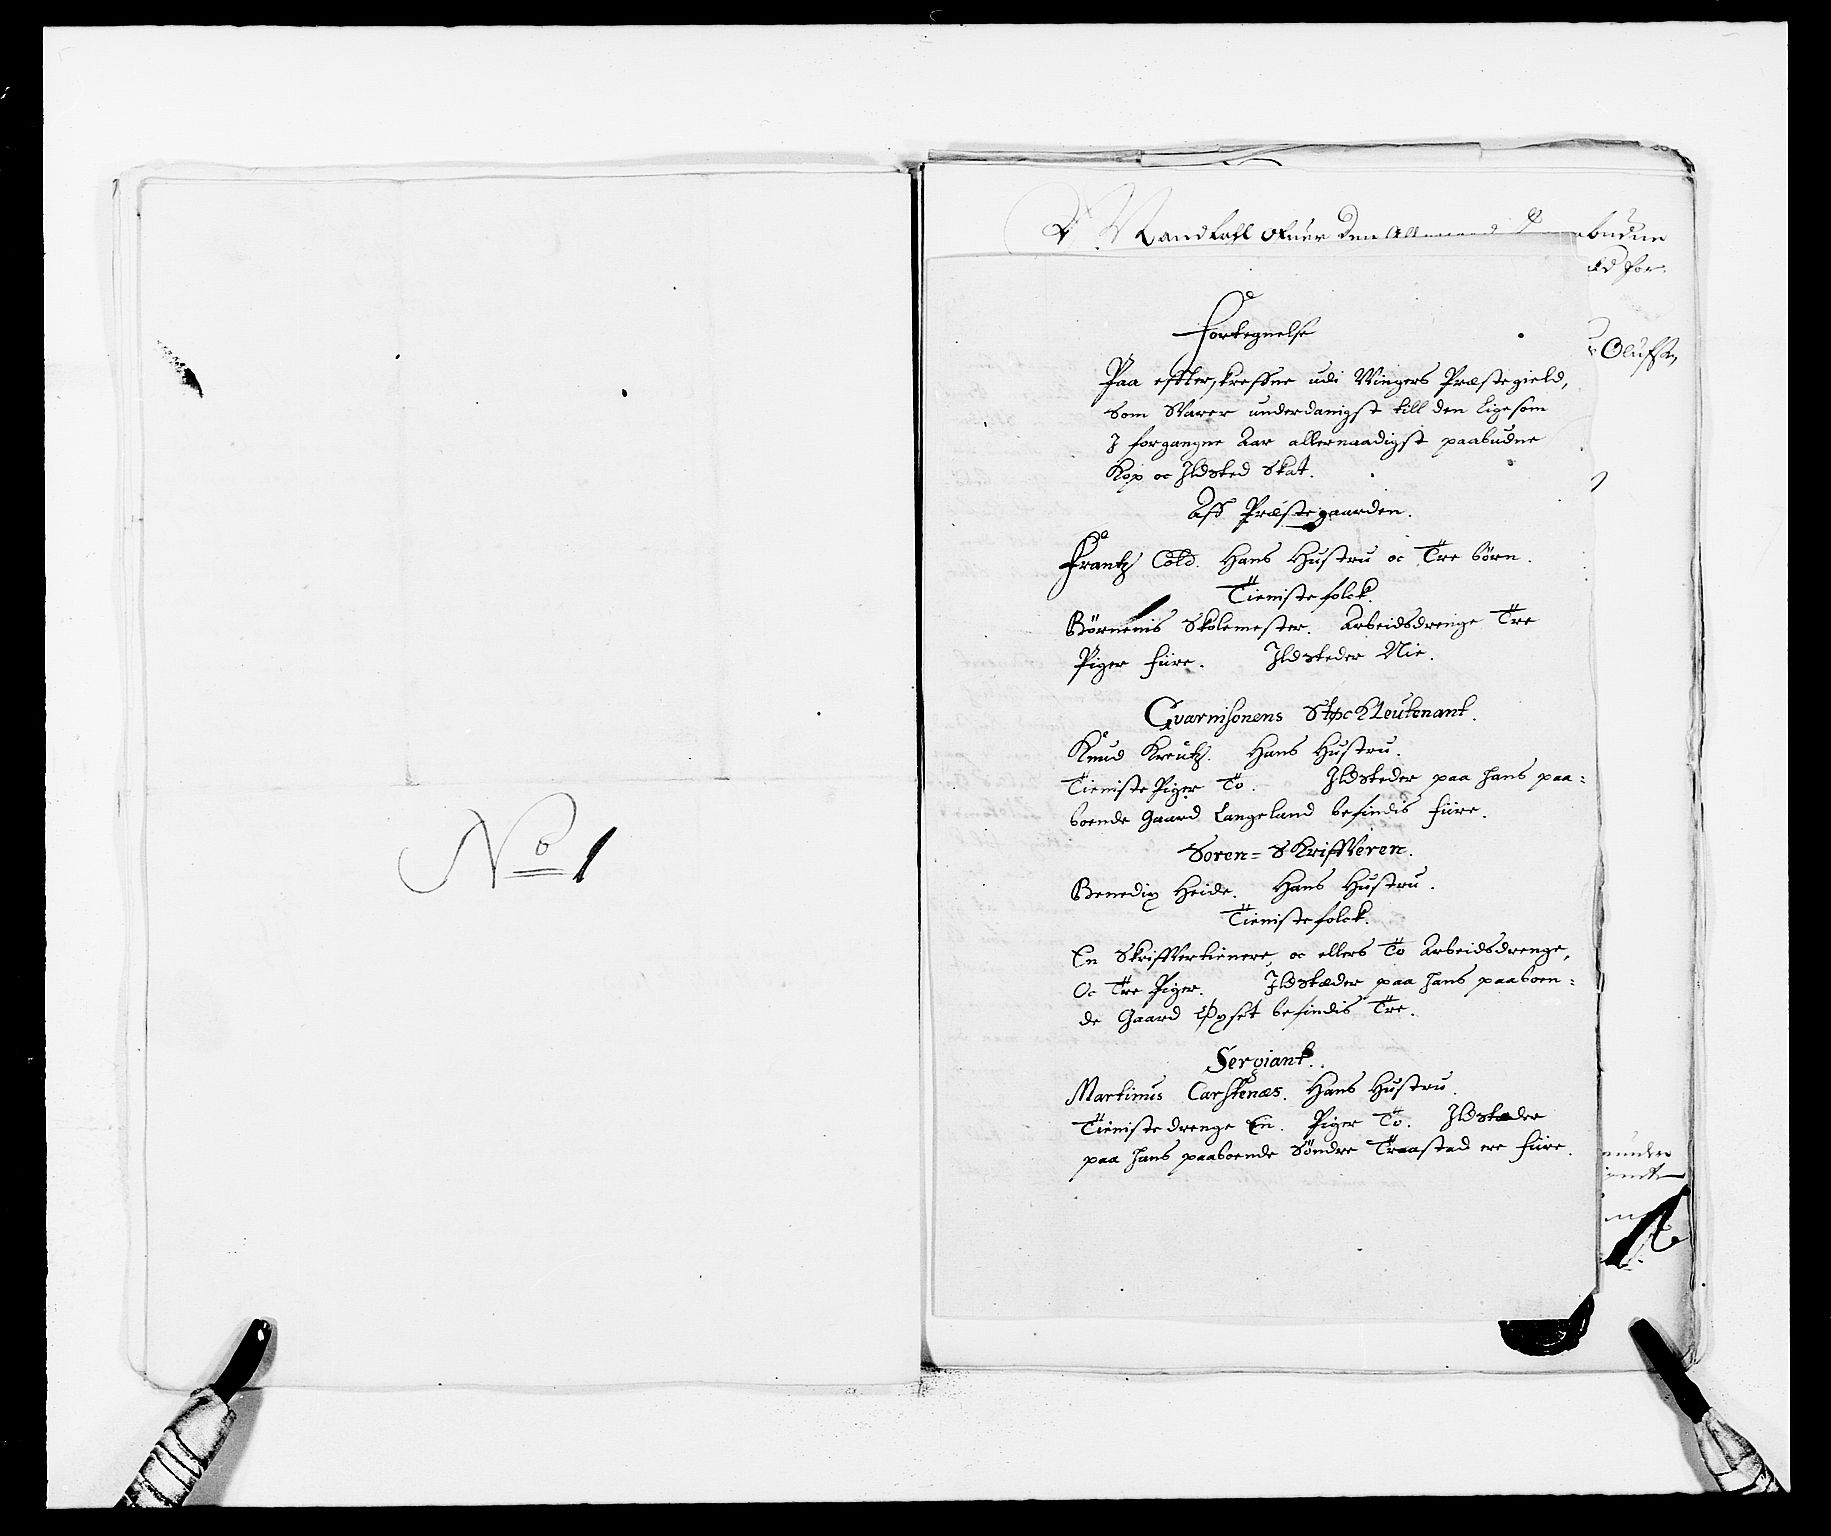 No 1
Mandtall ofuer den
budne
ld for.
Olufsen
Fortegnelse
Paa effterskreffne udi Wingers Præstegield,
Som Svarer underdanigst till den ligesom
I forgangne Aar allernaadigst paabudne
Kop oc Ildsted Skat.
Aff Præstegaarden.
Frantz Cold. Hans Hustru oc Tre børn.
Tienistefolck.
Børnenis Skolemester. Arbeidsdrenge Tre
Piger fiire. Ildsteder Nie.
Gvarnisonens StycKleutenant.
Knud Kreutz. Hans Hustru.
Tieniste Piger To. Ildsteder paa hans paa=
boende Gaard Langeland befindis fiire.
Soren=SKriffVeren.
Benedix Heide. Hans Hustru.
Tienistefolck.
En Skriffvertienere, oc ellers To Arbeidsdrenge,
Oc Tre Piger. Ildstæder paa hans paaboen=
de Gaard befindis Tre.
Sergiant.
Martinus Carstenæs. Hans Hustru.
Tienistedrenge En. Piger To. Ildstædre
paa hans paaboende Søndre Traastad ere fiire.